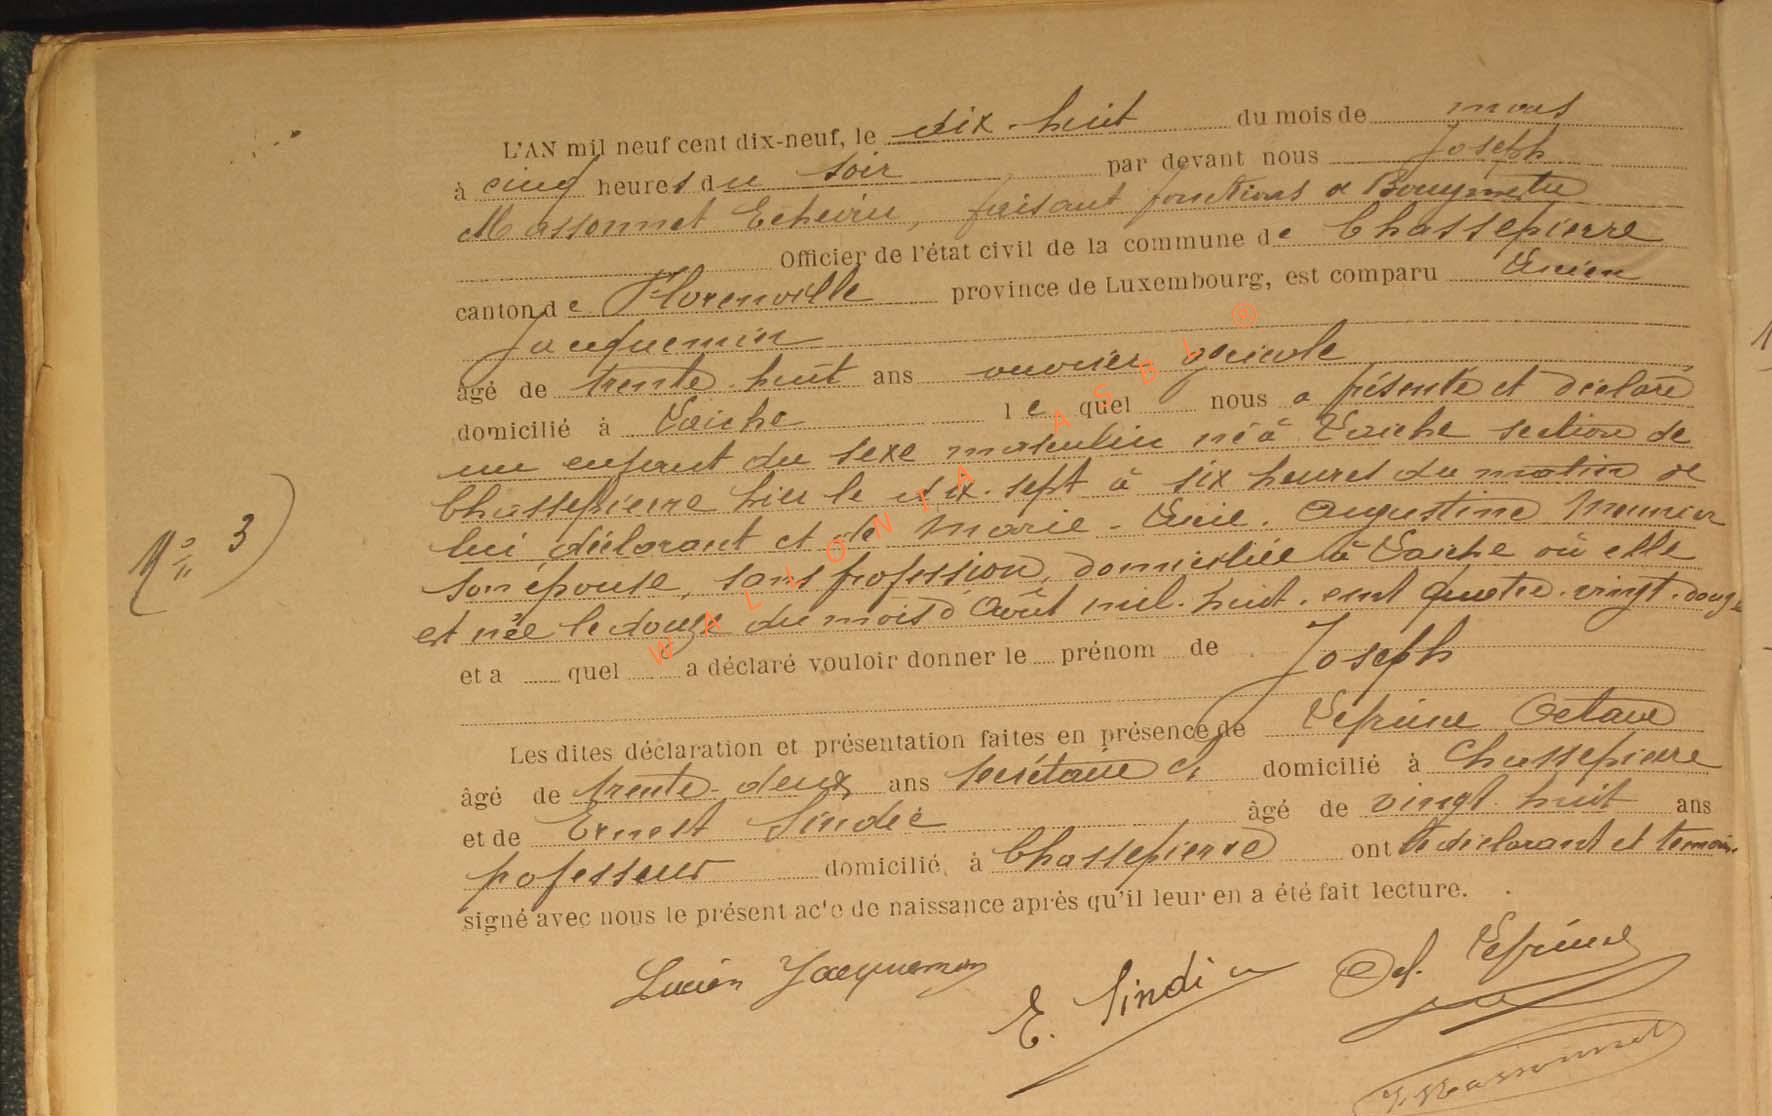 L'AN mil neuf cent dix-neuf, le dix-huit du mois de mars
à cinq heures du soir par devant nous Joseph
Massonnet Echevin, faisant fonctions de Bourgmestre
Officier de l'état civil de la commune de Chassepierre
canton de Florenville province de Luxembourg, est comparu Lucien
Jacquemin
âgé de trente-huit ans ouvrier agricole
domicilié à Laiche lequel nous a présenté et déclaré
un enfant du sexe masculin né à Laiche section de
Chassepierre hier le dix-sept à six heures du matin de
lui déclarant et de Marie-Lucie-Augustine Meunier
N° 3
son épouse, sans profession, domiciliée à Laiche où elle
est née le douze du mois d'Août mil-huit-cent quatre-vingt-douze
et a quel a déclaré vouloir donner le prénom de Joseph
Les dites déclaration et présentation faites en présence de Lefrune Octave
âgé de trente-deux ans secrétaire domicilié à Chassepierre
et de Ernest Sindic âgé de vingt-huit ans
professeur domicilié à Chassepierre ont le déclarant et témoins
signé avec nous le présent acte de naissance après qu'il leur en a été fait lecture.
Lucien Jacquemin
E. Sindic
Oct. Lefrune
J. Massonnet
WALLONIA ASBL ®